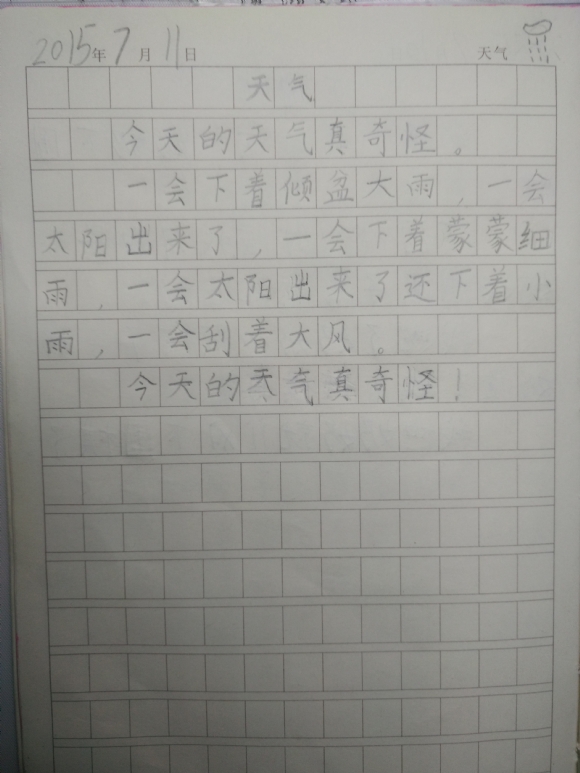 2015年7月11日 天气
天气
今天的天气真奇怪。
一会下着倾盆大雨，一会
太阳出来了，一会下着蒙蒙细
雨，一会太阳出来了还下着小
雨，一会刮着大风。
今天的天气真奇怪！